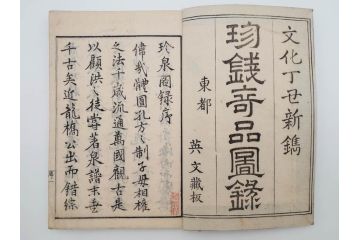 文化丁丑新鐫
珍錢奇品圖錄
東都 英文藏板
珍泉圖錄序
偉哉體圓孔方之制子母相權
之法千歲流通萬國觀古是
以顧洪之徒嘗著泉譜永垂
千古矣近龍橋公出而錯綜